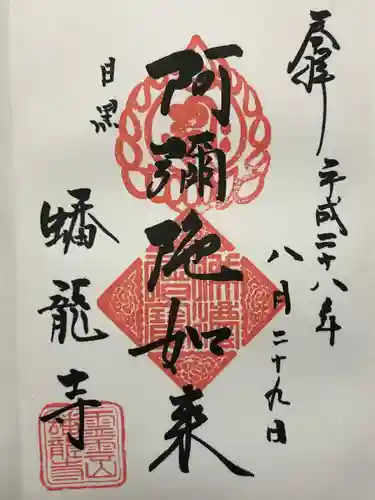 奉拝
平成二十八年
八月二十九日
阿彌陀如来
目黒
蟠龍寺